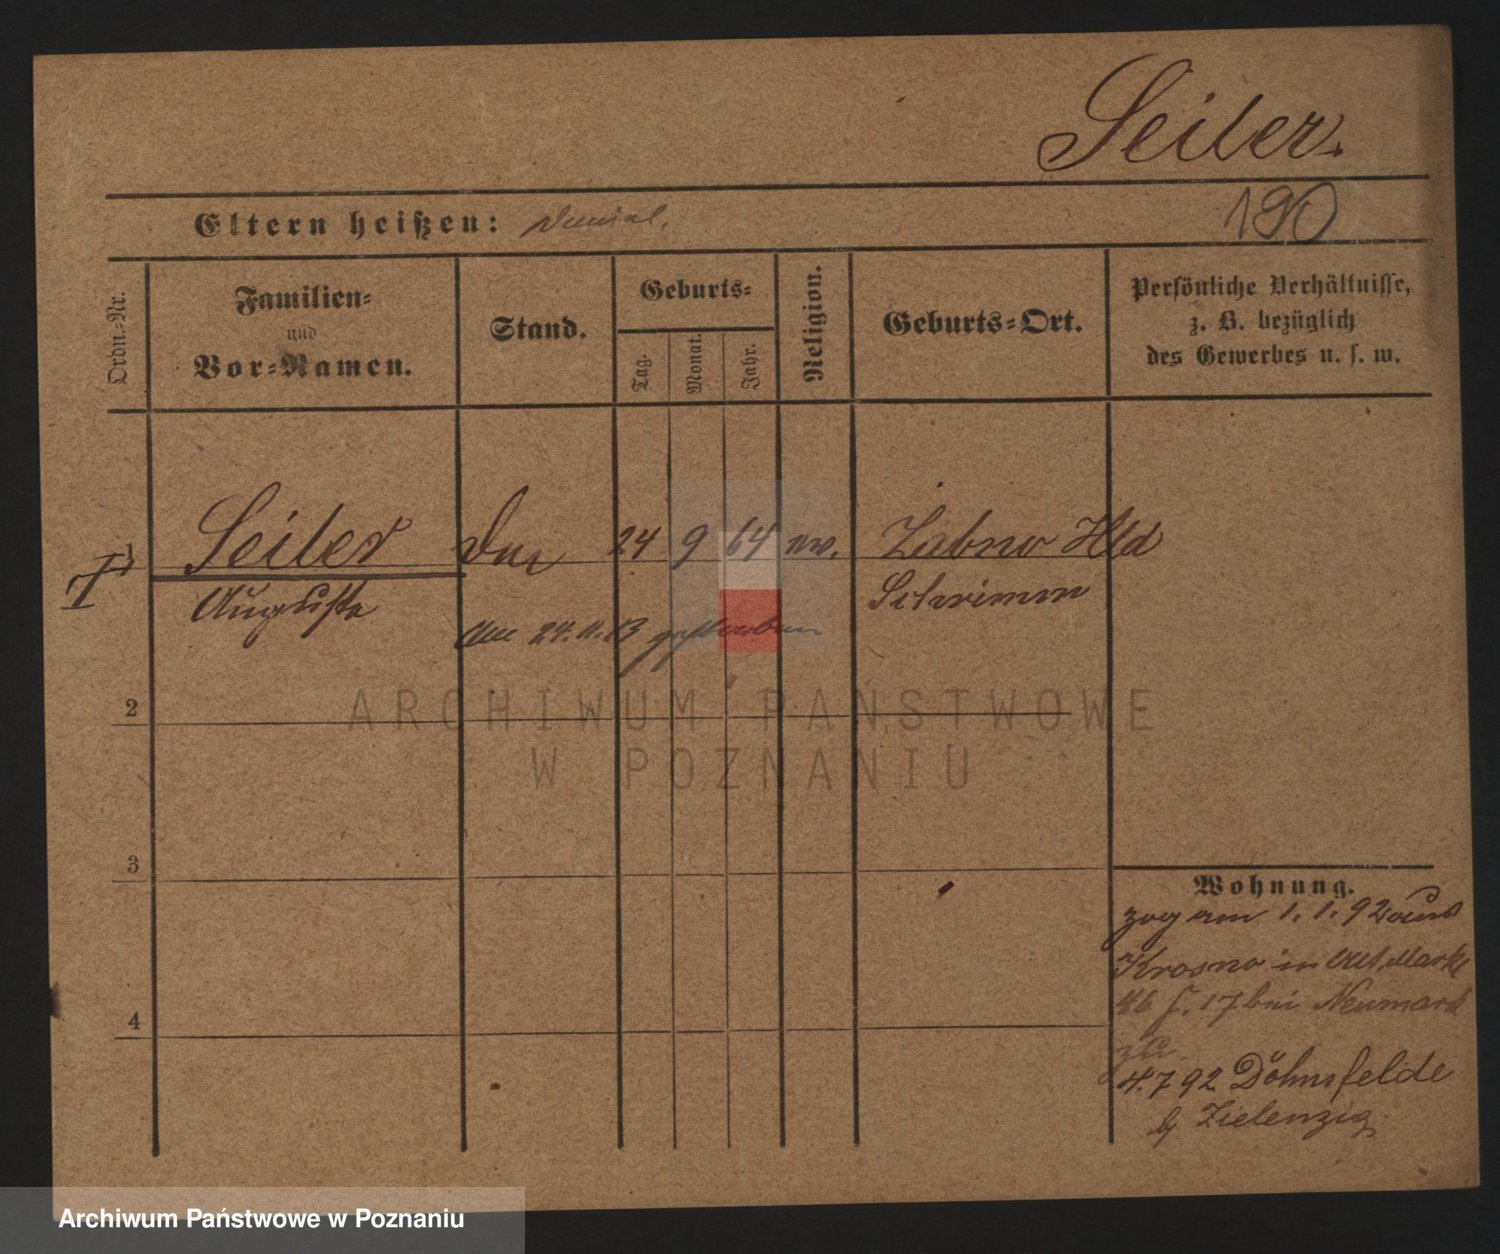 Seiler.
190
Eltern heißen: Daniel.
Ordn.-Nr.
Familien-
und
Vor-Namen.
Stand.
Geburts-
Tag.
Monat.
Jahr.
Religion.
Geburts-Ort.
Persönliche Verhältnisse,
z. B. bezüglich
des Gewerbes u. s. w.
1
Seiler
24 9 64 ev.
Zabno Hld
Auguste
Schrimm
24. 11. 13 gestorben
2
3
4
Wohnung.
zog am 1. 1. 92 aus
Krosno in Alt. Markt
46 f. 17 bei Neumark
4.7 92 Döhnsfelde
b Zielenzig
ARCHIWUM PAŃSTWOWE
W POZNANIU
Archiwum Państwowe w Poznaniu